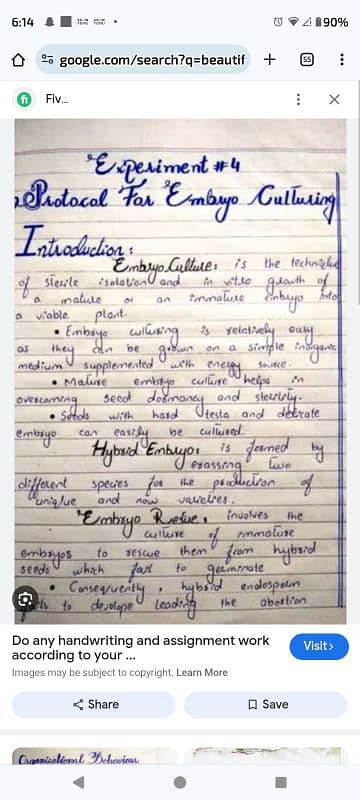 6:14
90%
google.com/search?q=beautif
55
Fiv...
Experiment #4
Protocal For Embryo Culturing
Introduction:
Embryo Culture: is the technique
of sterile isolation and in vitro growth of
a mature or an immature embryo into
a viable plant.
• Embryo culturing is relatively easy
as they can be grown on a simple inorganic
medium supplemented with energy source.
• Mature embryo culture helps in
overcoming seed dormancy and sterility.
• Seeds with hard testa and delicate
embryo can easily be cultured.
Hybrid Embryo: is formed by
crossing two
different species for the production of
unique and new varieties.
Embryo Rescue: involves the
culture of immature
embryos to rescue them from hybrid
seeds which fail to germinate
• Consequently, hybrid endosperm
to develope leading the abortion
Do any handwriting and assignment work
according to your ...
Visit
Images may be subject to copyright. Learn More
Share
Save
Organizational Behaviour